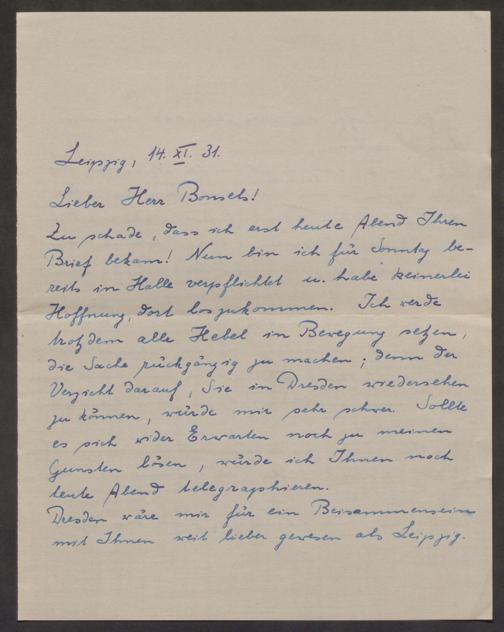 Leipzig, 14. XI. 31.
Lieber Herr Bonsels!
Zu schade, dass ich erst heute Abend Ihren
Brief bekam! Nun bin ich für Sonntag be-
reits in Halle verpflichtet u. habe keinerlei
Hoffnung, dort loszukommen. Ich werde
trotzdem alle Hebel in Bewegung setzen,
die Sache rückgängig zu machen; denn der
Verzicht darauf, Sie in Dresden wiedersehen
zu können, würde mir sehr schwer. Sollte
es sich wider Erwarten noch zu meinen
Gunsten lösen, würde ich Ihnen noch
heute Abend telegraphieren.
Dresden wäre mir für ein Beisammensein
mit Ihnen weit lieber gewesen als Leipzig.